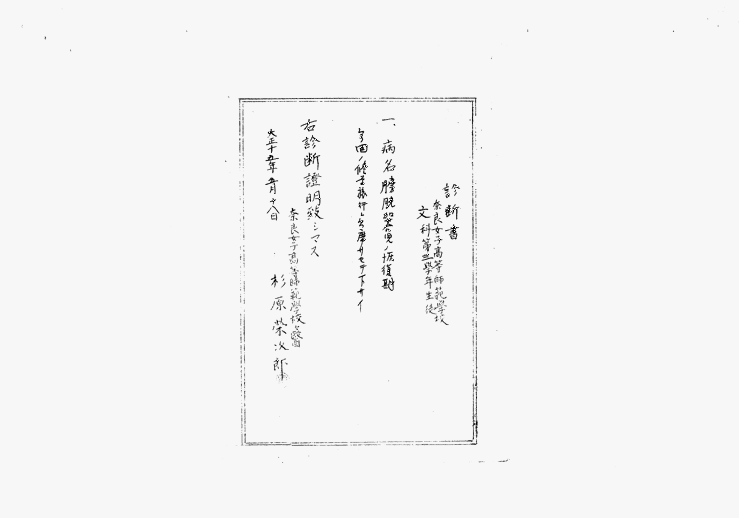 診断書
奈良女子高等師範學校
文科第三學年生徒
一、病名 膣脱器兒ノ恢復期
今回ノ修學旅行ハ欠席サセテ下サイ
右診断證明致シマス
大正十五年五月十八日
奈良女子高等師範學校校醫
杉原榮次郎